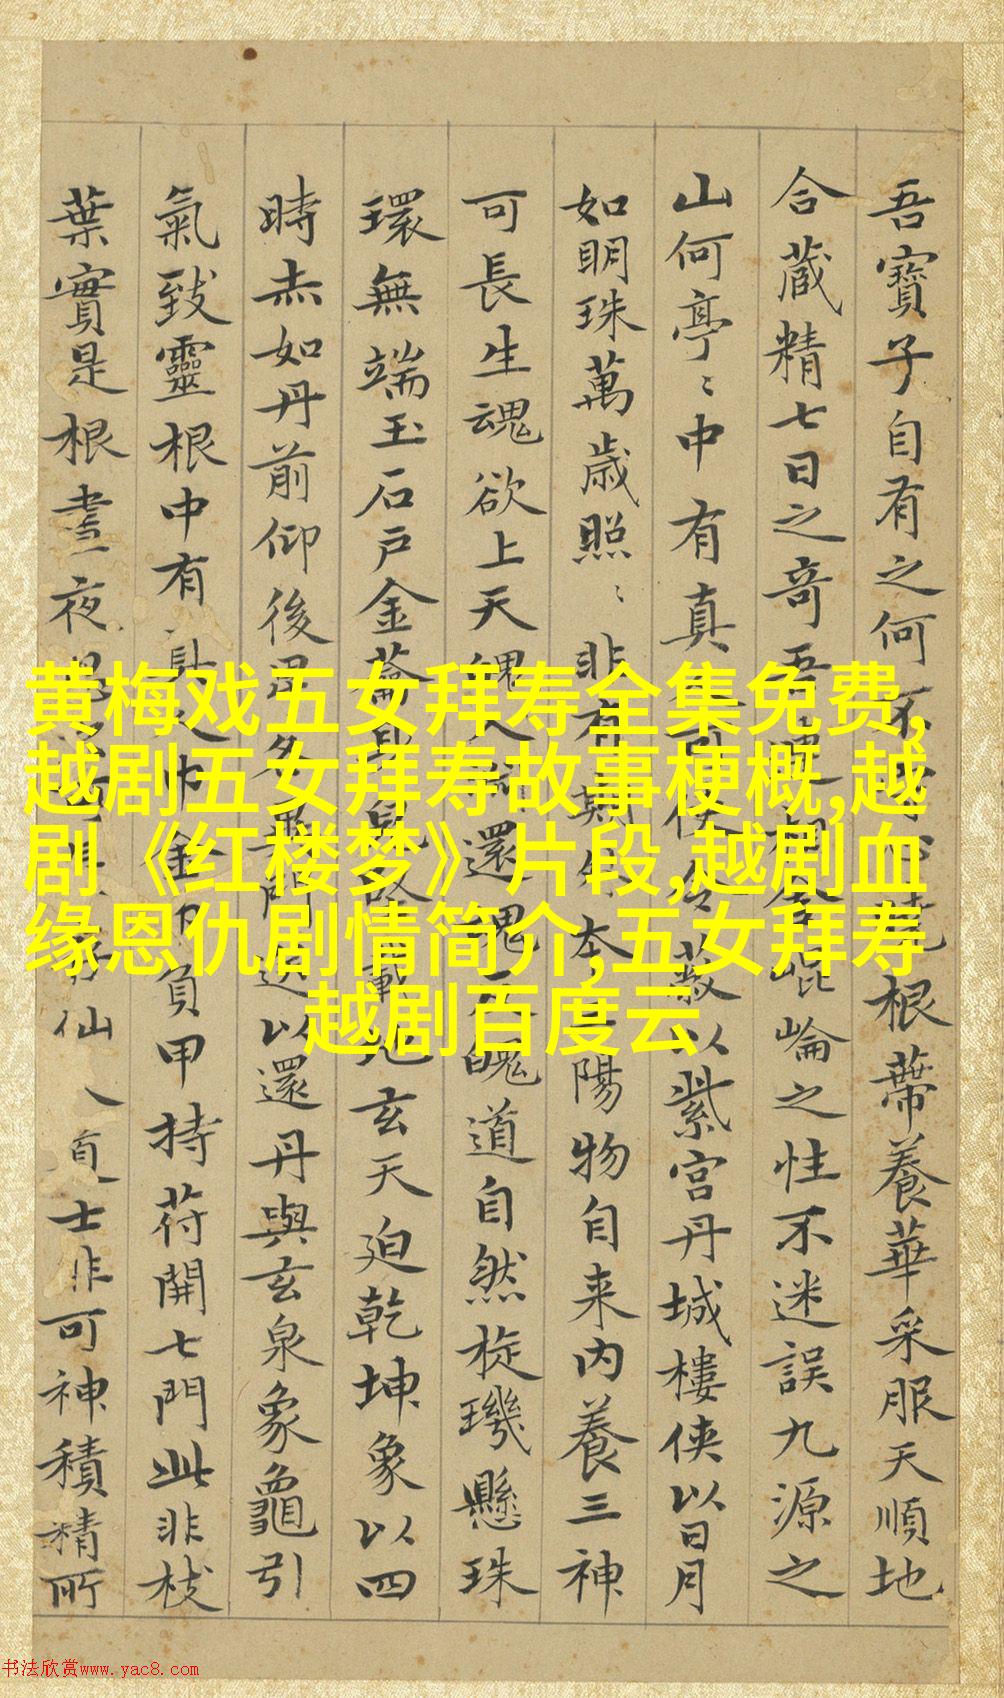 吾寶子自有之何不
根蔕養華采服天順地
合藏精七日之奇吾
崐崘之性不迷誤九源之
山何亭〻中有真
以紫宮丹城樓俠以日月
如明珠萬歲照〻非有期
本
陽物自来内養三神
可長生魂欲上天魄人
還魂反魄道自然旋璣懸珠
環無端玉石戶金蘥
玄天迫乾坤象以四
時赤如丹前仰後
以還丹與玄泉象龜引
氣致靈根中有
負甲持苻開七門此非枝
葉實是根晝夜思
仙
士非可神積精所
黄梅戏五女拜寿全集免费,
越剧五女拜寿故事梗概,越
剧《红楼梦》片段,越剧血
缘恩仇剧情简介,五女拜寿
越剧百度云
书法欣赏www.yac8.com